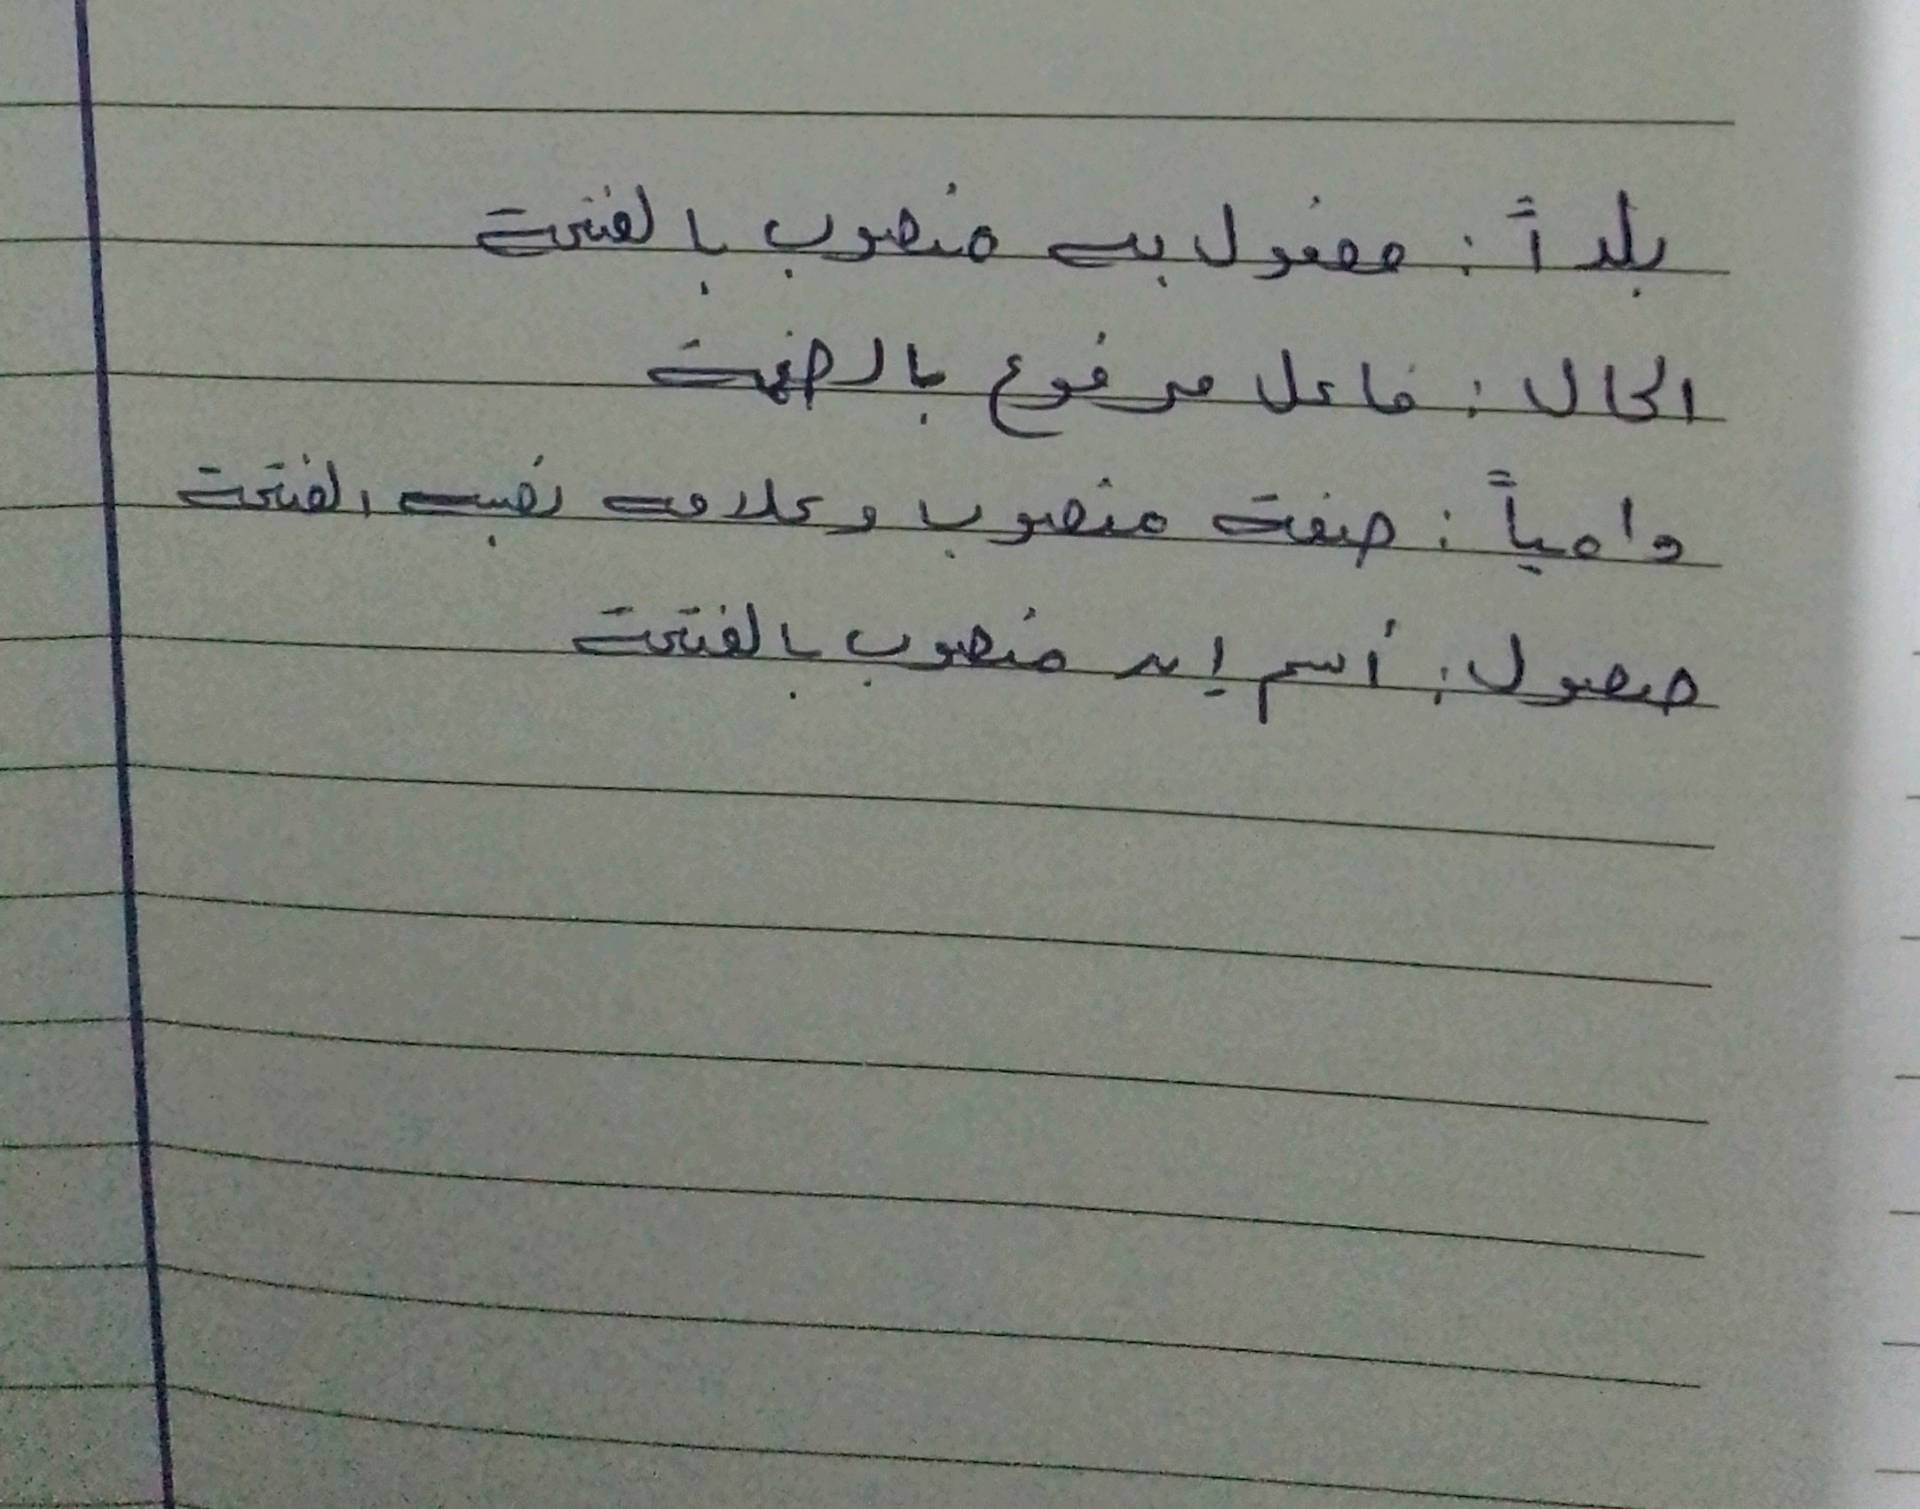 بلداً : مفعول به منصوب بالفتحة
الحال : فاعل مرفوع بالضمة
دامياً : صفة منصوب وعلامة نصبه الفتحة
صصول : أسم إن منصوب بالفتحة